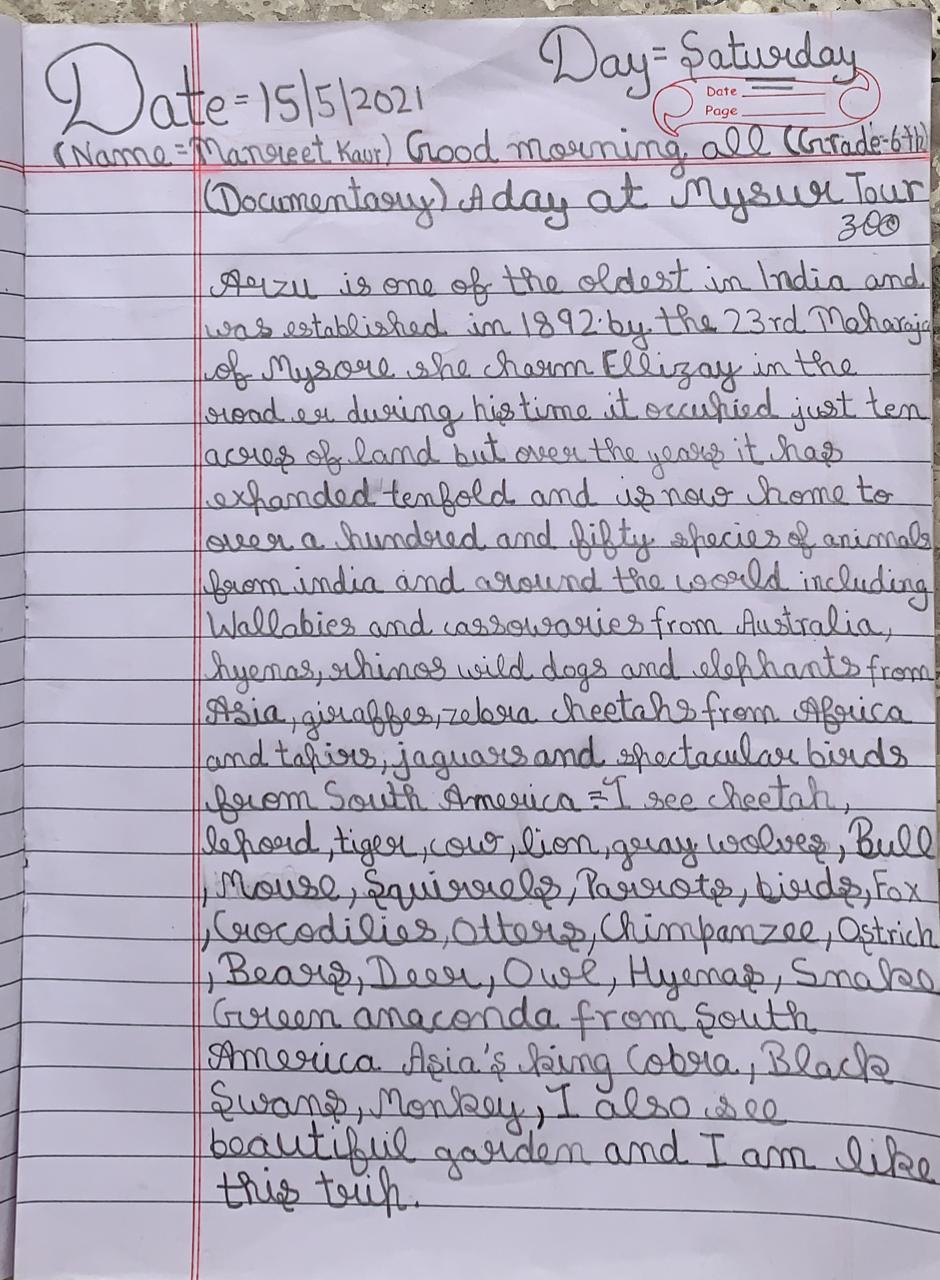 Day=Saturday
Date=15/5/2021
Date
Page
(Name=Manreet Kaur) Good morning all (Grade=6th)
(Documentary) A day at Mysur Tour
300
Arzu is one of the oldest in India and
was established in 1892 by the 23rd Maharaja
of Mysore she charm Ellizay in the
road er during his time it occupied just ten
acres of land but over the years it has
expanded tenfold and is now home to
over a hundred and fifty species of animals
from india and around the world including
Wallabies and cassowaries from Australia,
hyenas, rhinos wild dogs and elephants from
Asia, giraffes, zebra cheetahs from Africa
and tapirs, jaguars and spectacular birds
from South America = I see cheetah,
lepord, tiger, cow, lion, gray wolves, Bull
, Mouse, Squirrels, Parrots, birds, Fox
, Crocodilies, Otters, Chimpanzee, Ostrich
, Bears, Deer, Owl, Hyenas, Snake
Green anaconda from South
America Asia's king Cobra, Black
Swans, Monkey, I also see
beautifuil garden and I am like
this trip.